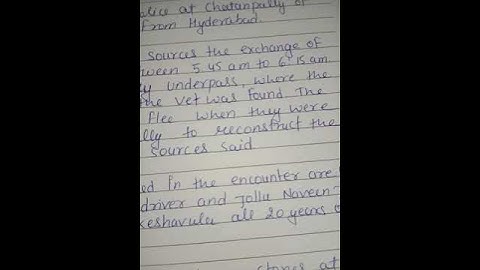 police at Chatanpally of
from Hyderabad.
sources the exchange of
ween 5.45 am to 6.15 am
y underpass, where the
the vet was found. The
flee when they were
lly to reconstruct the
sources said
ed in the encounter are
driver and Jollu Naveen
keshavulu all 20 years o
stones at